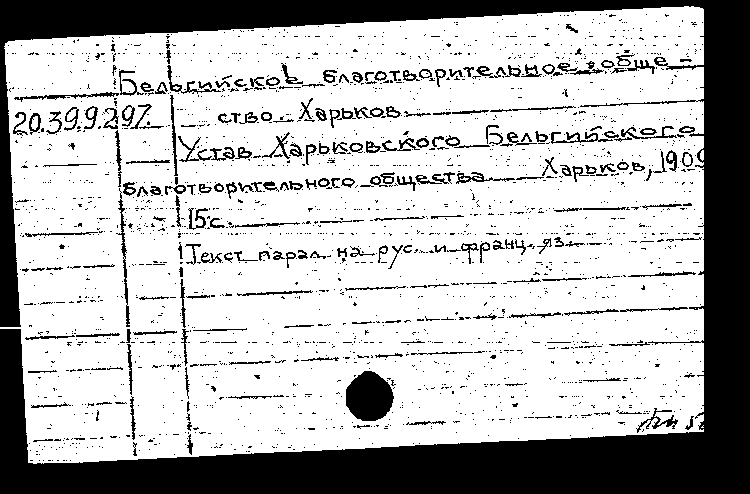 Бельгийское благотворительное обще-
20.39.9.297. ство. Харьков.
Устав Харьковского Бельгийского
благотворительного общества. Харьков, 1909
15с.
Текст парал. на рус. и франц. яз.